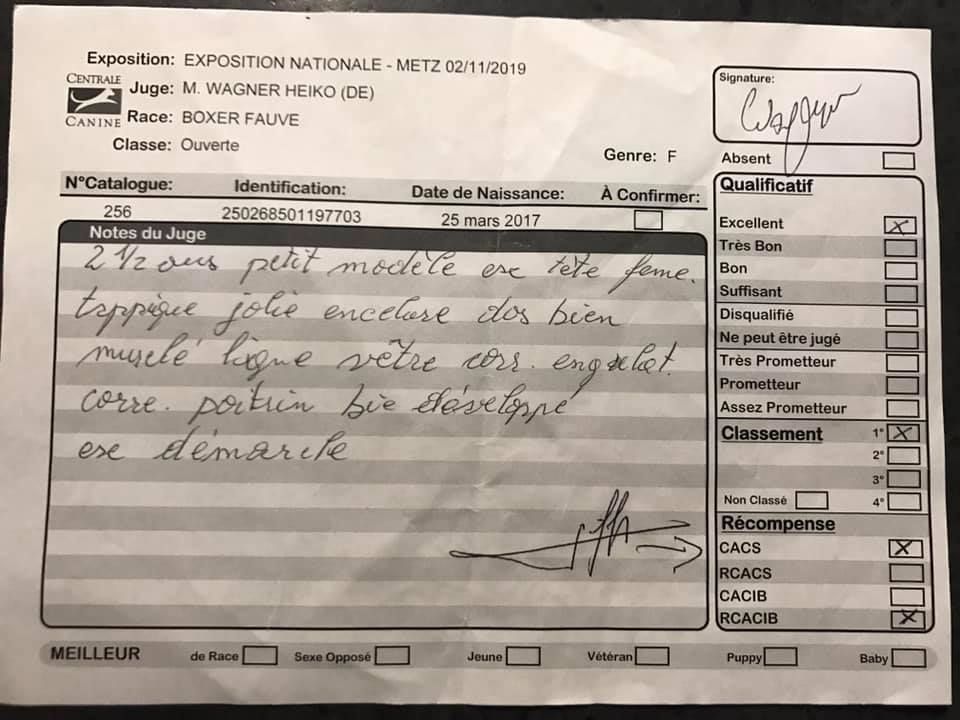 Exposition: EXPOSITION NATIONALE - METZ 02/11/2019
CENTRALE
CANINE
Juge: M. WAGNER HEIKO (DE)
Race: BOXER FAUVE
Classe: Ouverte
Genre: F
N°Catalogue: Identification: Date de Naissance: À Confirmer:
256 250268501197703 25 mars 2017
Notes du Juge
2 1/2 ans petit modèle exe tête feme.
typpique jolie encolure dos bien
musclé ligne vètre corr. engulat.
corre. poitrin bie dévéloppé
exe démarche
Signature:
Absent
Qualificatif
Excellent X
Très Bon
Bon
Suffisant
Disqualifié
Ne peut être jugé
Très Prometteur
Prometteur
Assez Prometteur
Classement 1° X
2°
3°
Non Classé 4°
Récompense
CACS X
RCACS
CACIB
RCACIB X
MEILLEUR de Race Sexe Opposé Jeune Vétéran Puppy Baby